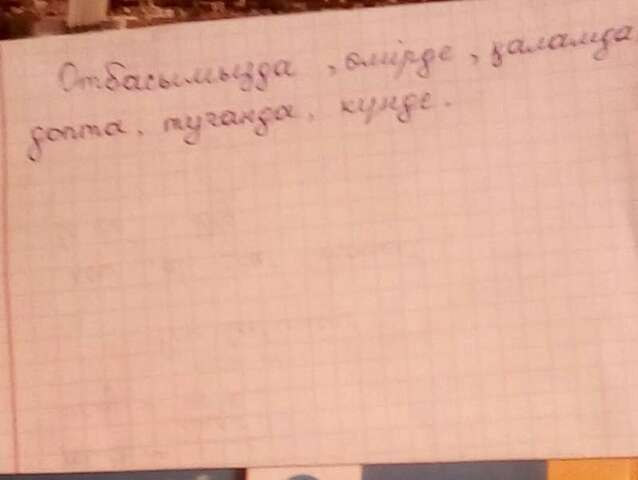 Отбасымызда, өмірде, қаламда
допта, туғанда, күнде.